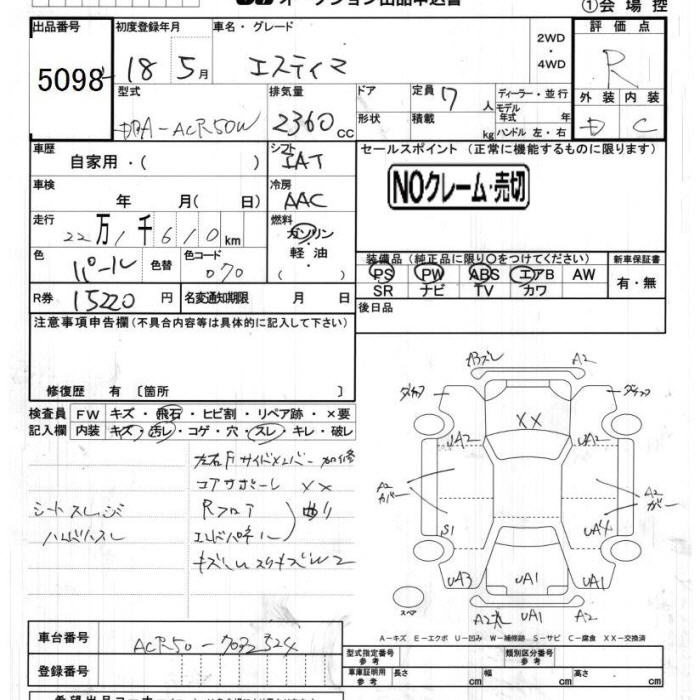 オークション出品申込書
①会場控
出品番号 初度登録年月 車名・グレード 評価点
5098 18年 5月 エスティマ 2WD・4WD R
型式 排気量 ドア 定員 7人 ディーラー・並行 外装 内装
DBA-ACR50W 2360cc 形状 積載 kg モデル年式 年 ハンドル 左・右 D C
車歴 シフト セールスポイント (正常に機能するものに限ります)
自家用・( ) IAT
NOクレーム・売切
車検 冷房
年 月( 日) AAC
走行 燃料
22万1千610km ガソリン
軽油
・( )
色 色替 色コード 装備品(純正品に限り○をつけてください) 新車保証書
パール 070 PS PW ABS エアB AW 有・無
SR ナビ TV カワ
R券 15220円 名変通知期限 月 日 後日品
注意事項申告欄(不具合内容等は具体的に記入して下さい)
修復歴 有〔箇所 〕
検査員 FW キズ・飛石・ヒビ割・リペア跡・×要
記入欄 内装 キズ・汚レ・コゲ・穴・スレ・キレ・破レ
コアサポート XX
シートスレ
Rフロア 曲り
ハンドルスレ
A2
XX
UA2 UA2
A2 A2
カバー
S1 UA4
UA3 UA1 UA1
スペア
UA1 A2
A-キズ E-エクボ U-凹み W-補修跡 S-サビ C-腐食 XX-交換済
車台番号 ACR50-
型式指定番号 参考 類別区分番号 参考
登録番号
車庫証明用 参考 長さ cm 幅 cm 高さ cm
希望出品コーナー